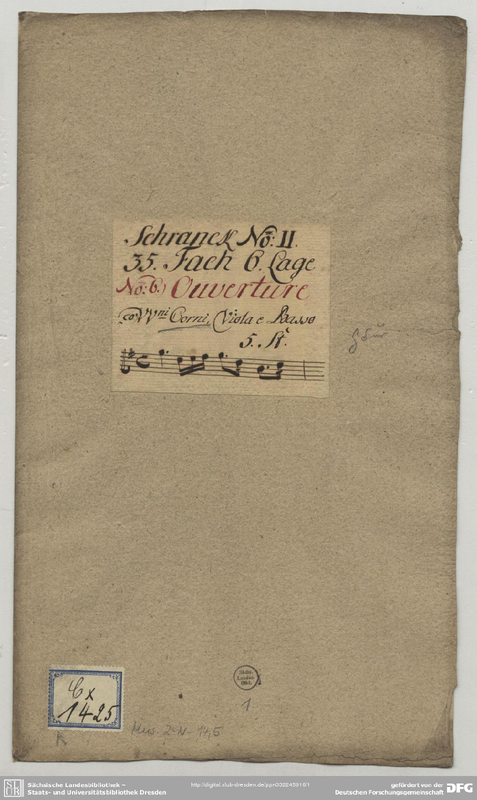 Schranck No: II.
35. Fach 6. Lage
No: 6.) Ouverture
co VVni Corni, Viola e Basso
5. St.
G dur
Cx
1425
Mus. 2-N-
1
Sächsische Landesbibliothek –
Staats- und Universitätsbibliothek Dresden
gefördert von der
Deutschen Forschungsgemeinschaft
DFG